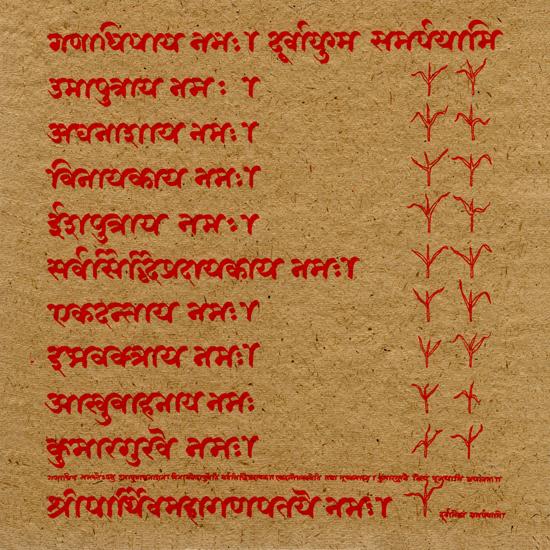 गणाधिपाय नमः। दूर्वायुग्म समर्पयामि
उमापुत्राय नमः ।
अघनाशाय नमः।
विनायकाय नमः।
ईशपुत्राय नमः।
सर्वसिद्धिप्रदायकाय नमः।
एकदन्ताय नमः।
इभवक्त्राय नमः।
आखुवाहनाय नमः
कुमारगुरवे नमः।
श्रीपार्थिवमहागणपतये नमः।
समर्पयामि